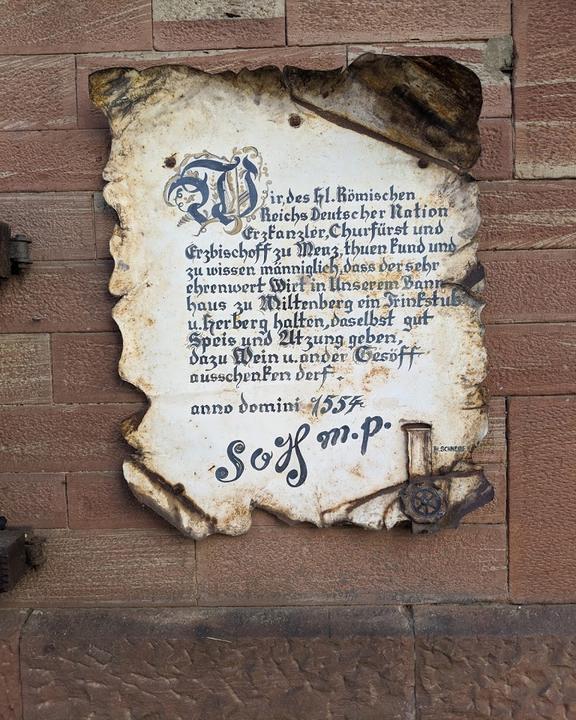 Wir, des Hl. Römischen
Reichs Deutscher Nation
Erzkanzler, Churfürst und
Erzbischoff zu Menz, thuen kund und
zu wissen männiglich, dass der sehr
ehrenwert Wirt in Unserem Bann-
haus zu Miltenberg ein Trinkstub
u. Herberg halten, daselbst gut
Speis und Atzung geben,
dazu Wein u. ander Gesöff
ausschenken derf.
anno domini 1554
m.p.